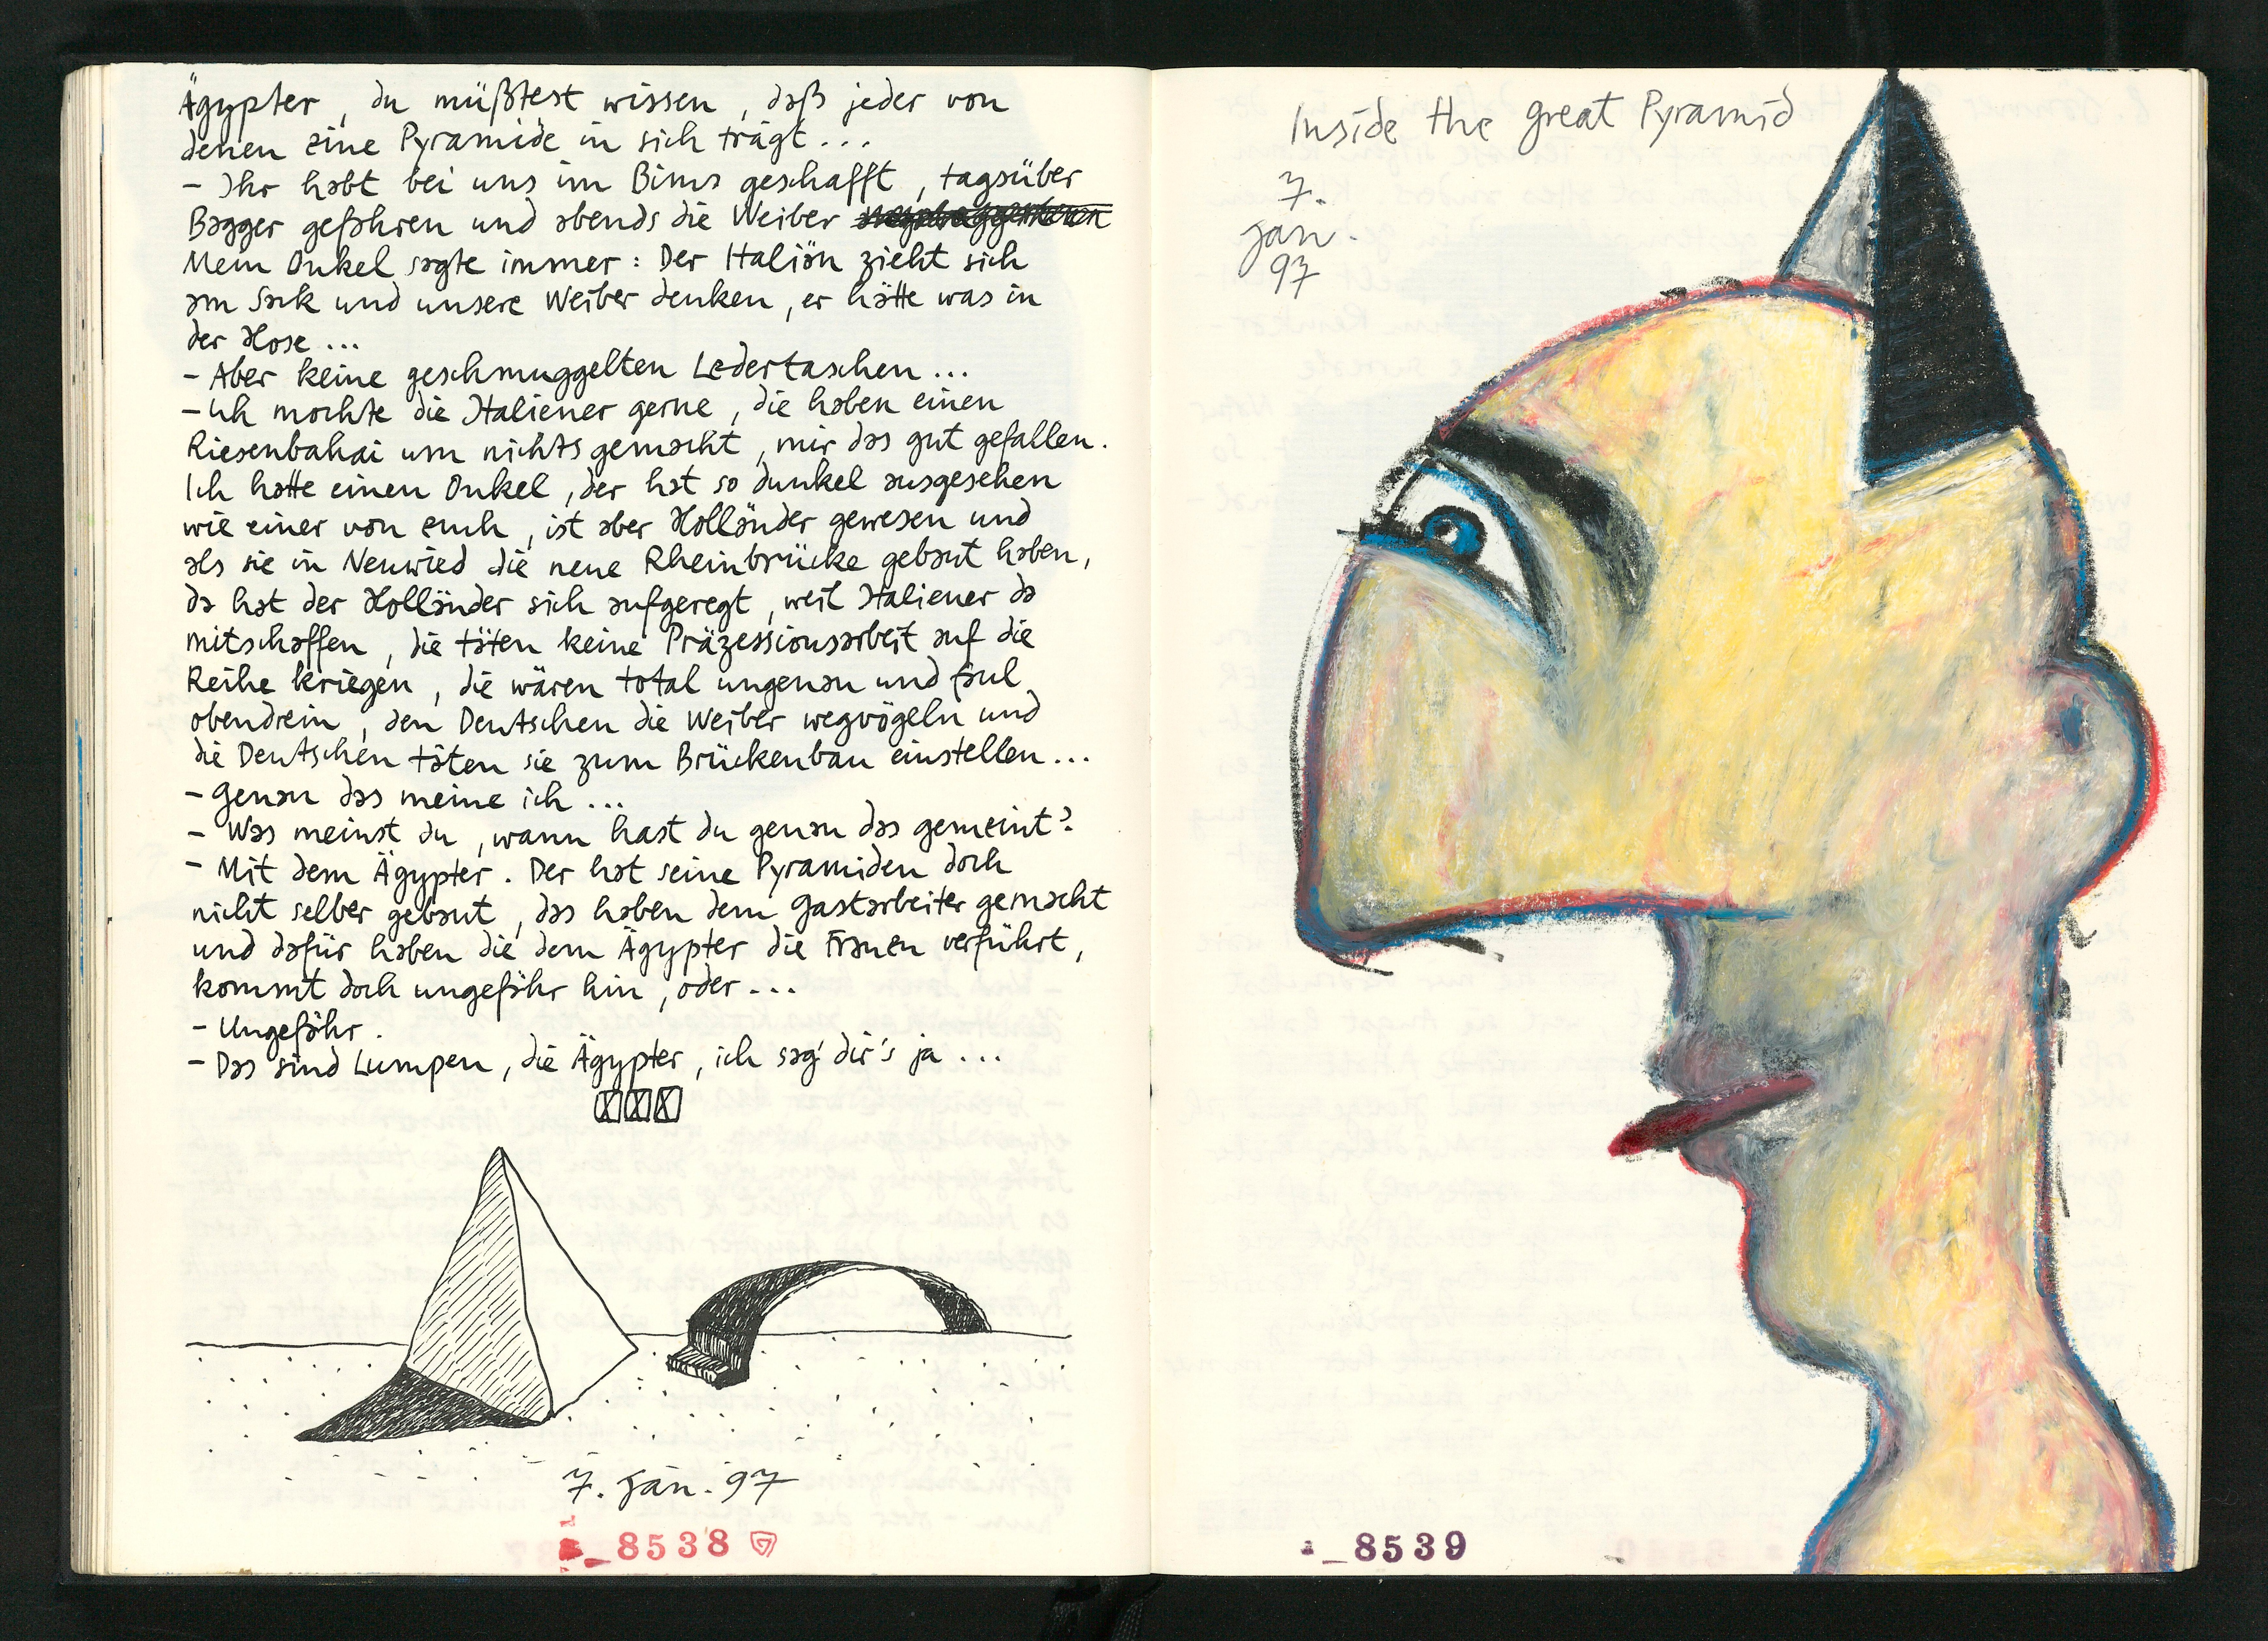 Ägypter, du müßtest wissen, daß jeder von
denen eine Pyramide in sich trägt...
- Ihr habt bei uns im Bims geschafft, tagsüber
Bagger gefahren und abends die Weiber
Mein Onkel sagte immer: Der Italiän zieht sich
am Sack und unsere Weiber denken, er hätte was in
der Hose...
- Aber keine geschmuggelten Ledertaschen...
- Ich mochte die Italiener gerne, die haben einen
Riesenbahai um nichts gemacht, mir das gut gefallen.
Ich hatte einen Onkel, der hat so dunkel ausgesehen
wie einer von euch, ist aber Holländer gewesen und
als sie in Neuwied die neue Rheinbrücke gebaut haben,
da hat der Holländer sich aufgeregt, weil Italiener da
mitschaffen, die täten keine Präzessionsarbeit auf die
Reihe kriegen, die wären total ungenau und faul
obendrein, den Deutschen die Weiber wegvögeln und
die Deutschen täten sie zum Brückenbau einstellen...
- Genau das meine ich...
- Was meinst du, wann hast du genau das gemeint?
- Mit dem Ägypter. Der hat seine Pyramiden doch
nicht selber gebaut, das haben dem Gastarbeiter gemacht
und dafür haben die dem Ägypter die Frauen verführt,
kommt doch ungefähr hin, oder...
- Ungefähr.
- Das sind Lumpen, die Ägypter, ich sag' dir's ja...
7. Jan. 97
_8538
Inside the great Pyramid
7.
Jan.
97
_8539